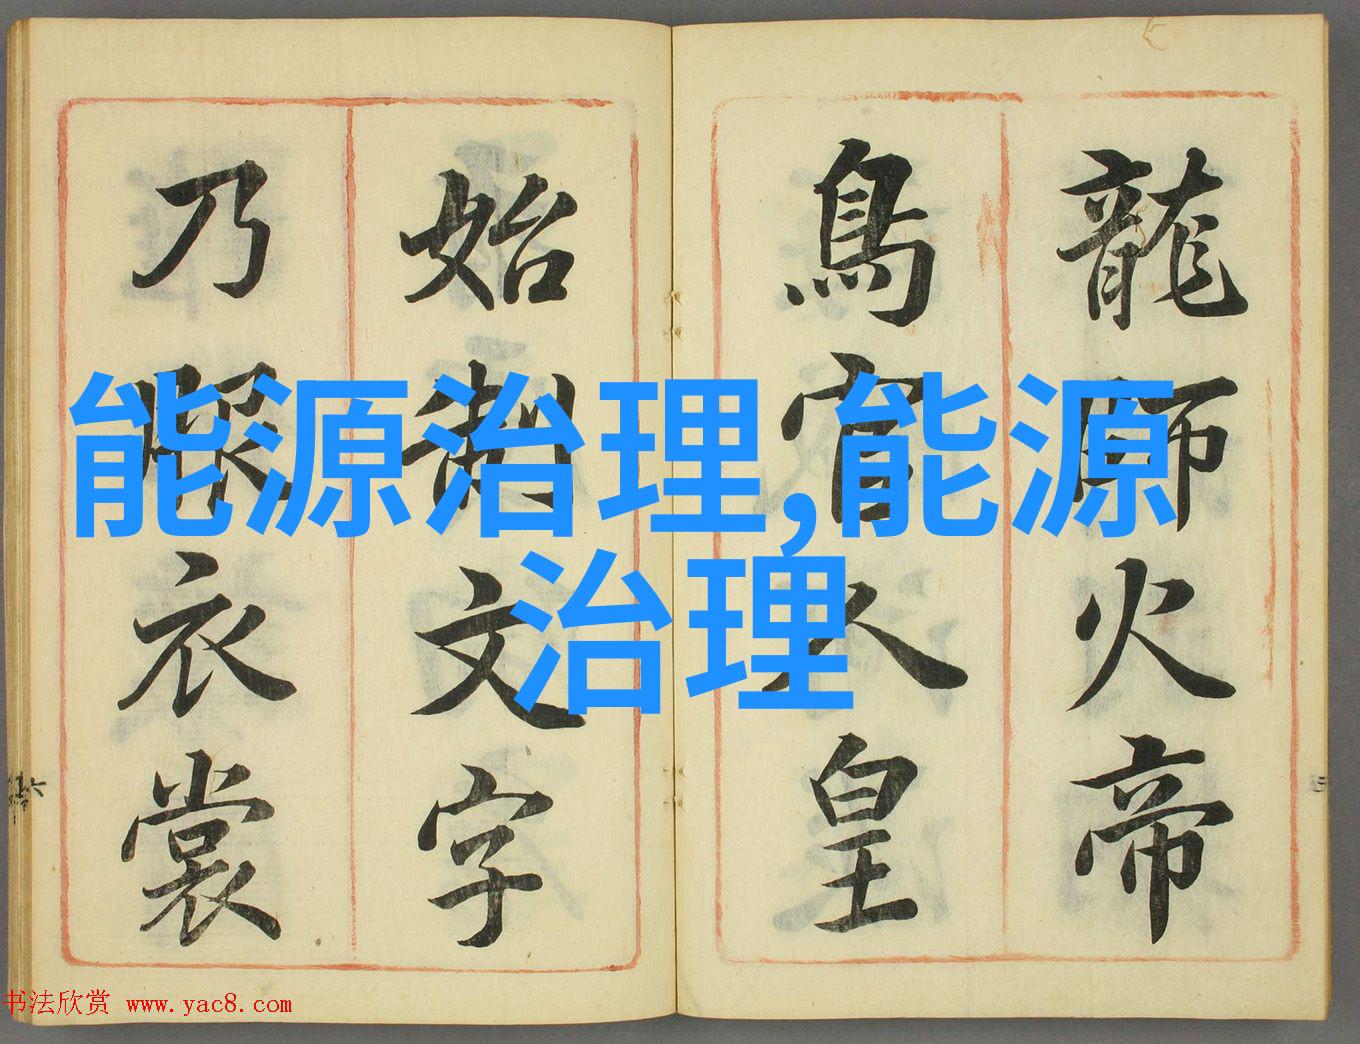 龍師火帝
鳥官人皇
始制文字
乃服衣裳
能源治理,能源
治理
书法欣赏 www.yac8.com